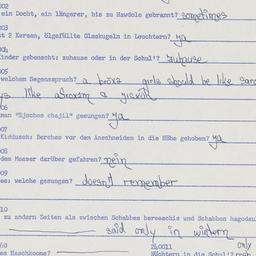 002
ein Docht, ein längerer, bis zu Hawdole gebrannt? sometimes
003
st 2 Kerzen, ölgefüllte Glaskugeln in Leuchtern? ya
004
Kinder gebenscht: zuhause oder in der Schul'? zuhause
005
welchem Segensspruch? a broxe girls should be like Sara
like a & 
06
man "Ejsches chajil" gesungen? ya
07
Kiddusch: Berches vor dem Anschneiden in die Höhe gehoben? ya
008
dem Messer darüber gefahren? nein
009
es: welche gesungen? doesn't remember
010
zu andern Zeiten als zwischen Schabbes bereeschis und Schabbes hagodau
said only in wintern
60 240011 only
es Haschkoome? Töchtern in die Schul'?